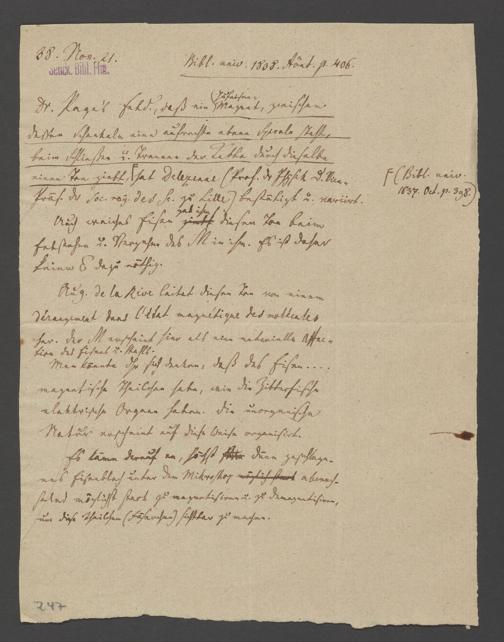 38. Nov. 21.
Bibl. univ. 1838. Août. p. 406.
Senck. Bibl. Ffm.
Dr. Page's Entd., daß ein Hufeisen-Magnet, zwischen
dessen Schenkeln eine aufrechte ebene Spirale steht,
beim Schließen u. Trennen der Kette durch dieselbe
einen Ton giebt, hat Delezenne (Prof. der Physik u. Vice-
Präs. der Soc. roy. des Sc. zu Lille) bestätigt u. variirt.
F (Bibl. univ.
1837. Oct. p. 398.)
Auch weiches Eisen giebt diesen Ton beim
Entstehen u. Vergehen des M in ihm. Es ist daher
keine dazu nöthig.
Aug. de la Rive leitet diesen Ton von einem
dérangement dans l'état magnétique des molécules
her. Der M erscheint hier als eine materielle
des Eisens u. Stahls.
Man könnte sich denken, daß das Eisen....
magnetische Theilchen habe, wie die Zitterfische
elektrische Organe haben. Die unorganische
Natur erscheint auf diese Weise organisirt.
Es käme darauf an, höchst dünn geschlage-
nes Eisenblech unter dem Mikroskop abwech-
selnd möglichst stark zu magnetisiren u. zu demagnetisiren,
um diese Theilchen sichtbar zu machen.
247